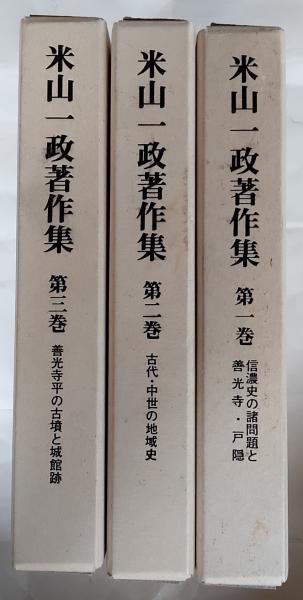 米山一政著作集
第一巻
信濃史の諸問題と
善光寺・戸隠
米山一政著作集
第二巻
古代・中世の地域史
米山一政著作集
第三巻
善光寺平の古墳と城館跡